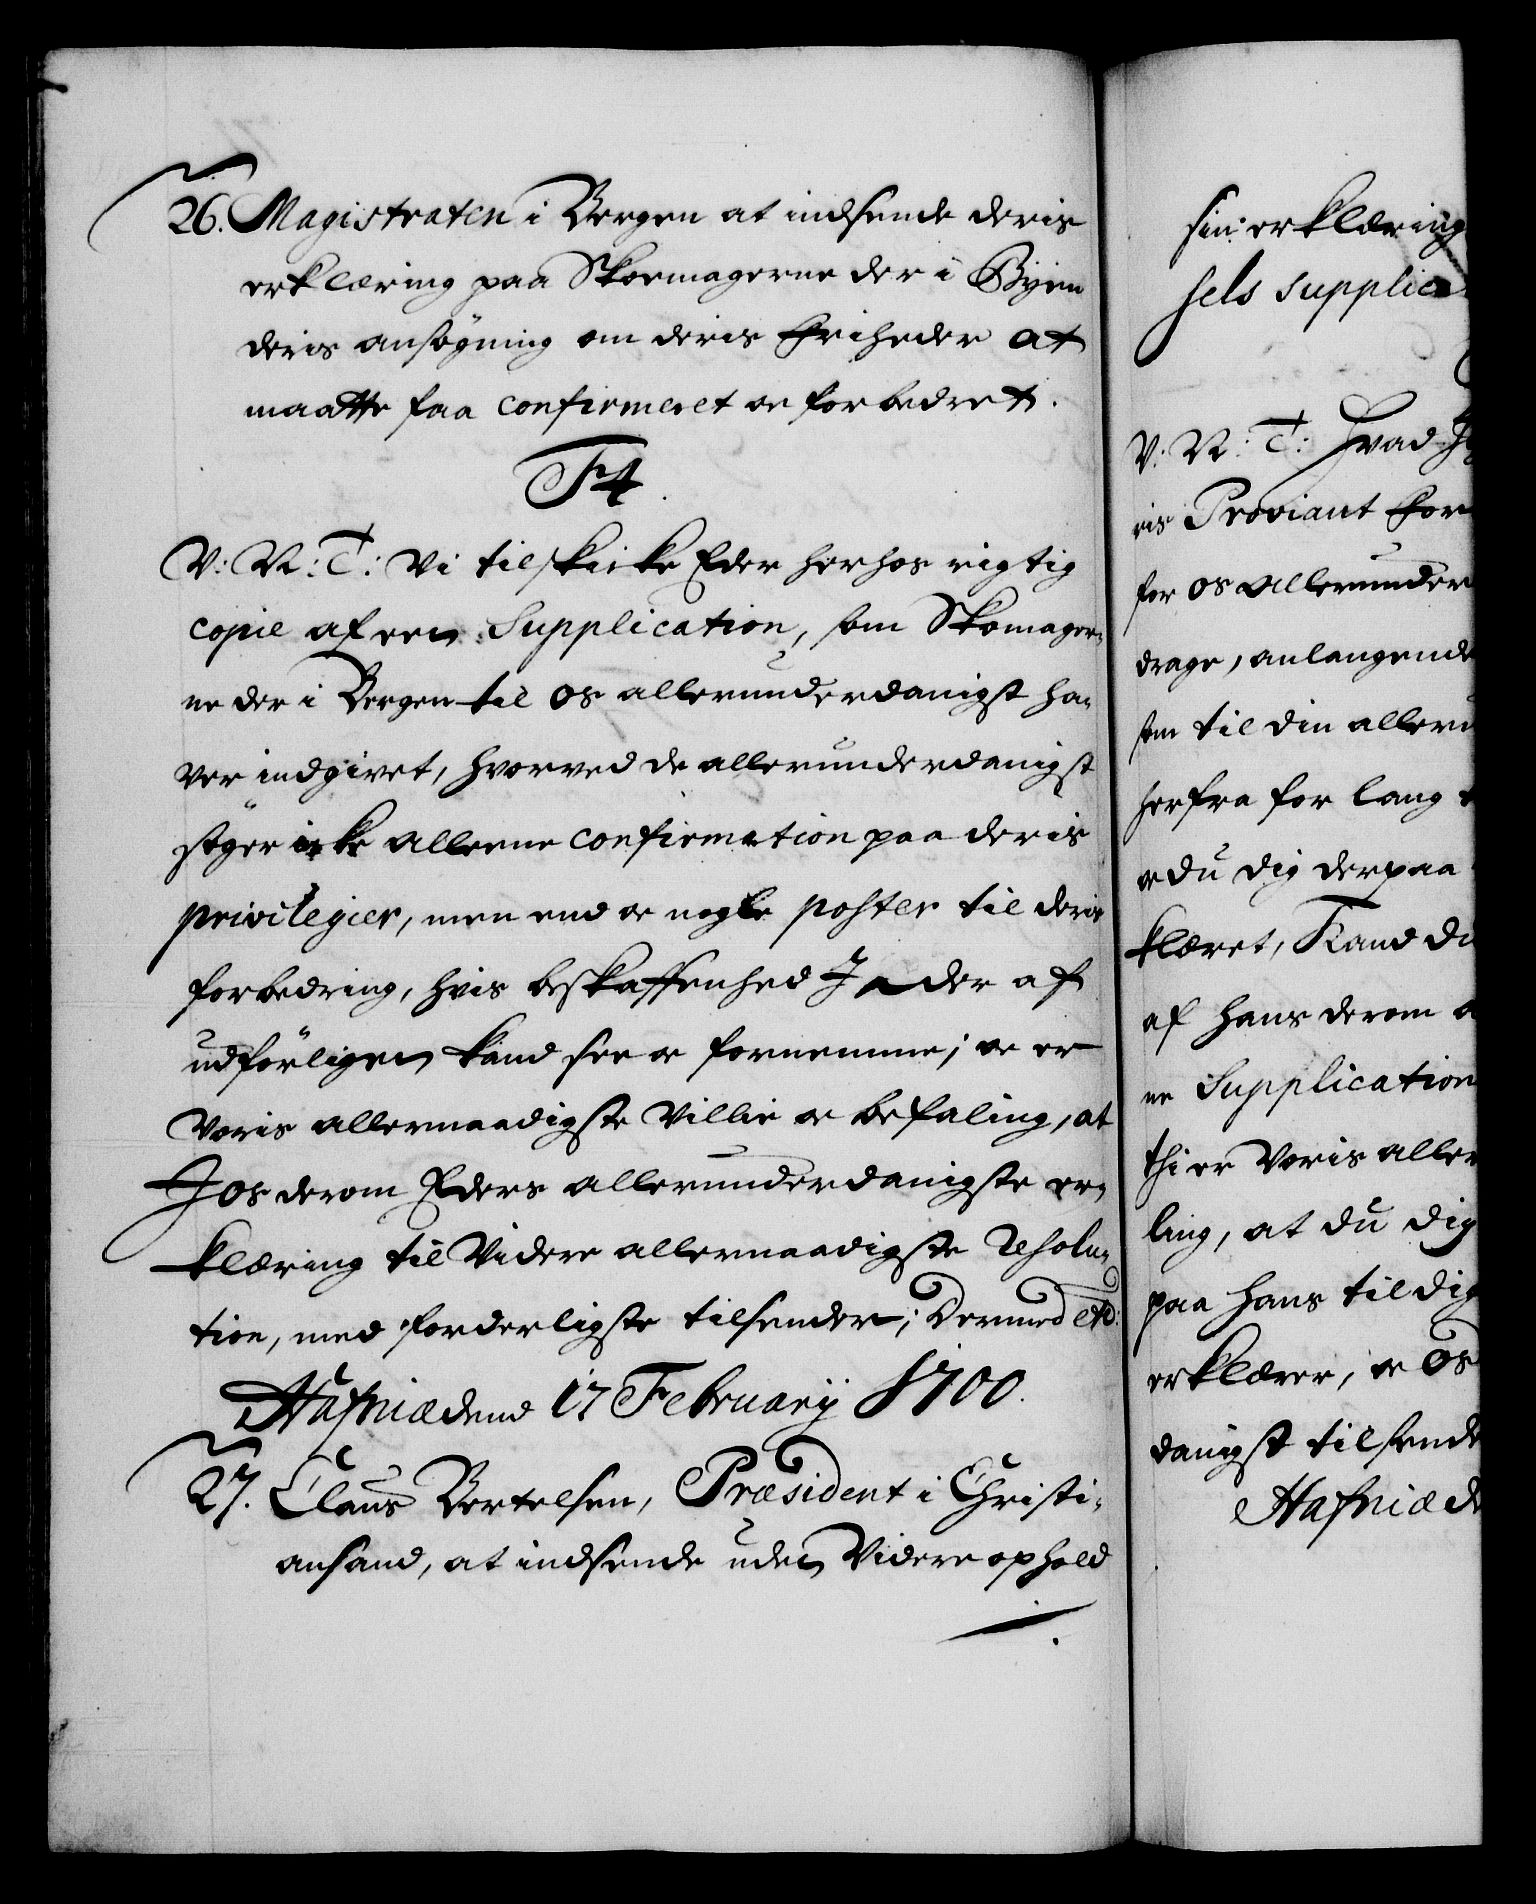 26. Magistraten i Bergen at indsende deris
erklæring paa Skoemagerne der i Byen
deris ansøgning om deris Friheder at
maatte faa confirmeret oc forbedret.
F4
V: N: T: Vi tilskicke Eder herhos rigtig
copie af een Supplication, som Skomager-
ne der i Bergen til os allerunderdanigst ha-
ver indgivet, hvorved de allerunderdanigst
søger icke alleene confirmation paa deris
privilegier, men end oc nogle poster til deris
forbedring, hvis beskaffenhed I der af
udförligen kand see oc fornemme; oc er
Voris allernaadigste Villie oc befaling, at
I os derom Eders allerunderdanigste er-
klæring til Videre allernaadigste Resolu-
tion, med forderligste tilsender; Dermed etc:
Hafniæ dend 17 Februarij 1700.
27. Claus Bertelsen, Præsident i Christi-
ansand, at indsende uden Videre ophold
sin erklæring
sels supplica
V: N: T: Hvad
ris Proviant For
for os allerunder
drage, anlangende
som til din alleru
herfra for lang
oc du dig derpaa
klæret, Kand du
af hans derom
ne Supplication
thi er Voris aller
ling, at du dig
paa hans til dig
erklærer, oc os
danigst tilsende
Hafniæ de